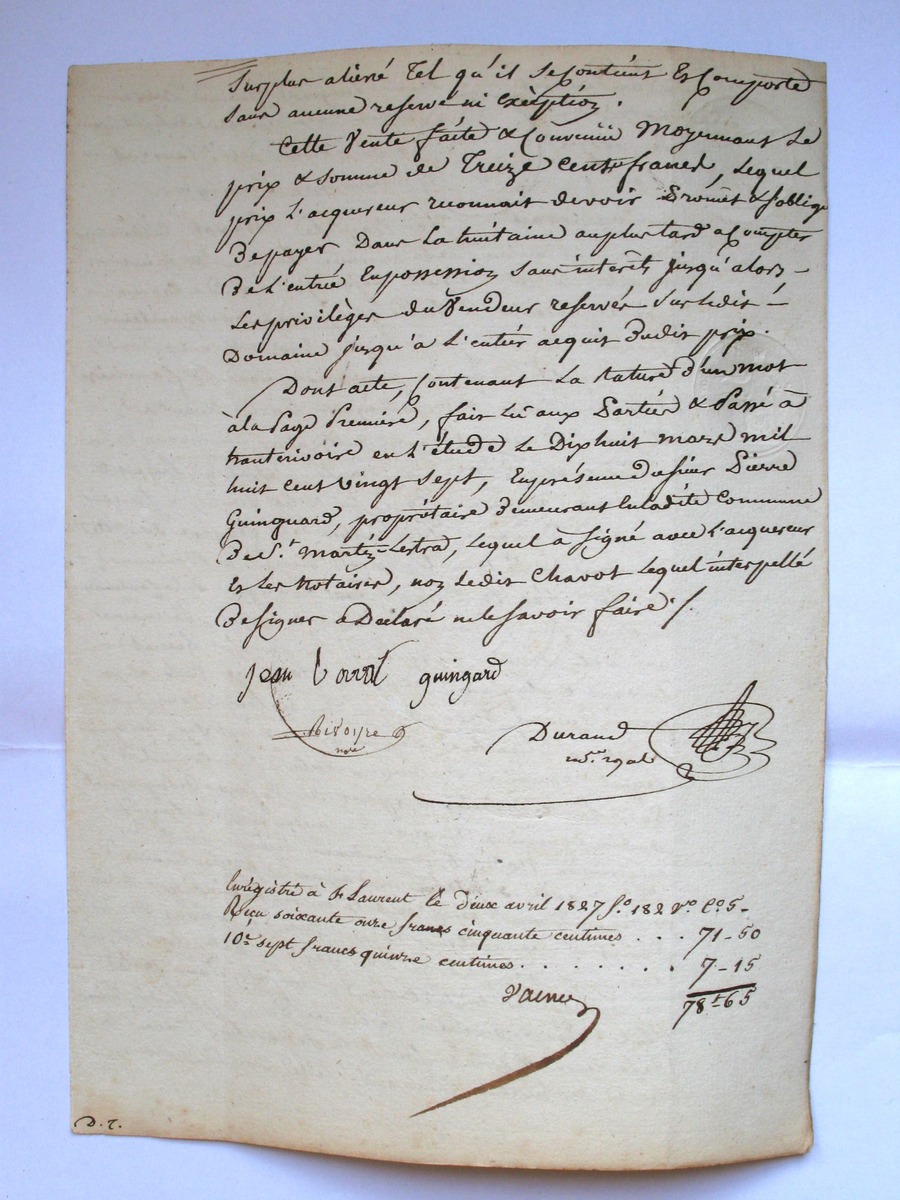 Surplus aliéné Tel qu'il Se Contient Et Comporte
Sans aucune reserve ni exéption.
Cette Vente faite & Convenue Moyennant Le
prix & Somme de Treize Cents francs, Lequel
prix L'acquereur reconnait devoir Promet & S'oblige
De payer Dans La huitaine au plus tard a Compter
De L'entrée En possession Sans intérêts jusqu'alors –
Les privilèges du Vendeur reservés Sur Ledit –
Domaine jusqu'à L'entier acquit Dudit prix.
Dont acte, Contenant La rature d'un mot
à la Page Première, fait Lu aux Parties & Passé à
hauterivoire en L'étude Le Dix huit mars mil
huit Cent Vingt Sept, En présence du Sieur Pierre
Guinguard, propriétaire Demeurant En Ladite Commune
De St. Martin-Lestra, Lequel à Signé avec L'acquereur
Et Les Notaires, non Ledit Chavot Lequel interpellé
De Signer a Déclaré ne le Savoir faire ./.
jean guingard
nore
Durand
nre. royal
Enrégistré à St Laurent le deux avril 1827 fo. 182 Vo. Co 5 –
Reçu soixante onze francs cinquante centimes . . . 71 – 50
10e sept francs quinze centimes . . . . . . . . 7 – 15
78f 65
D. T.